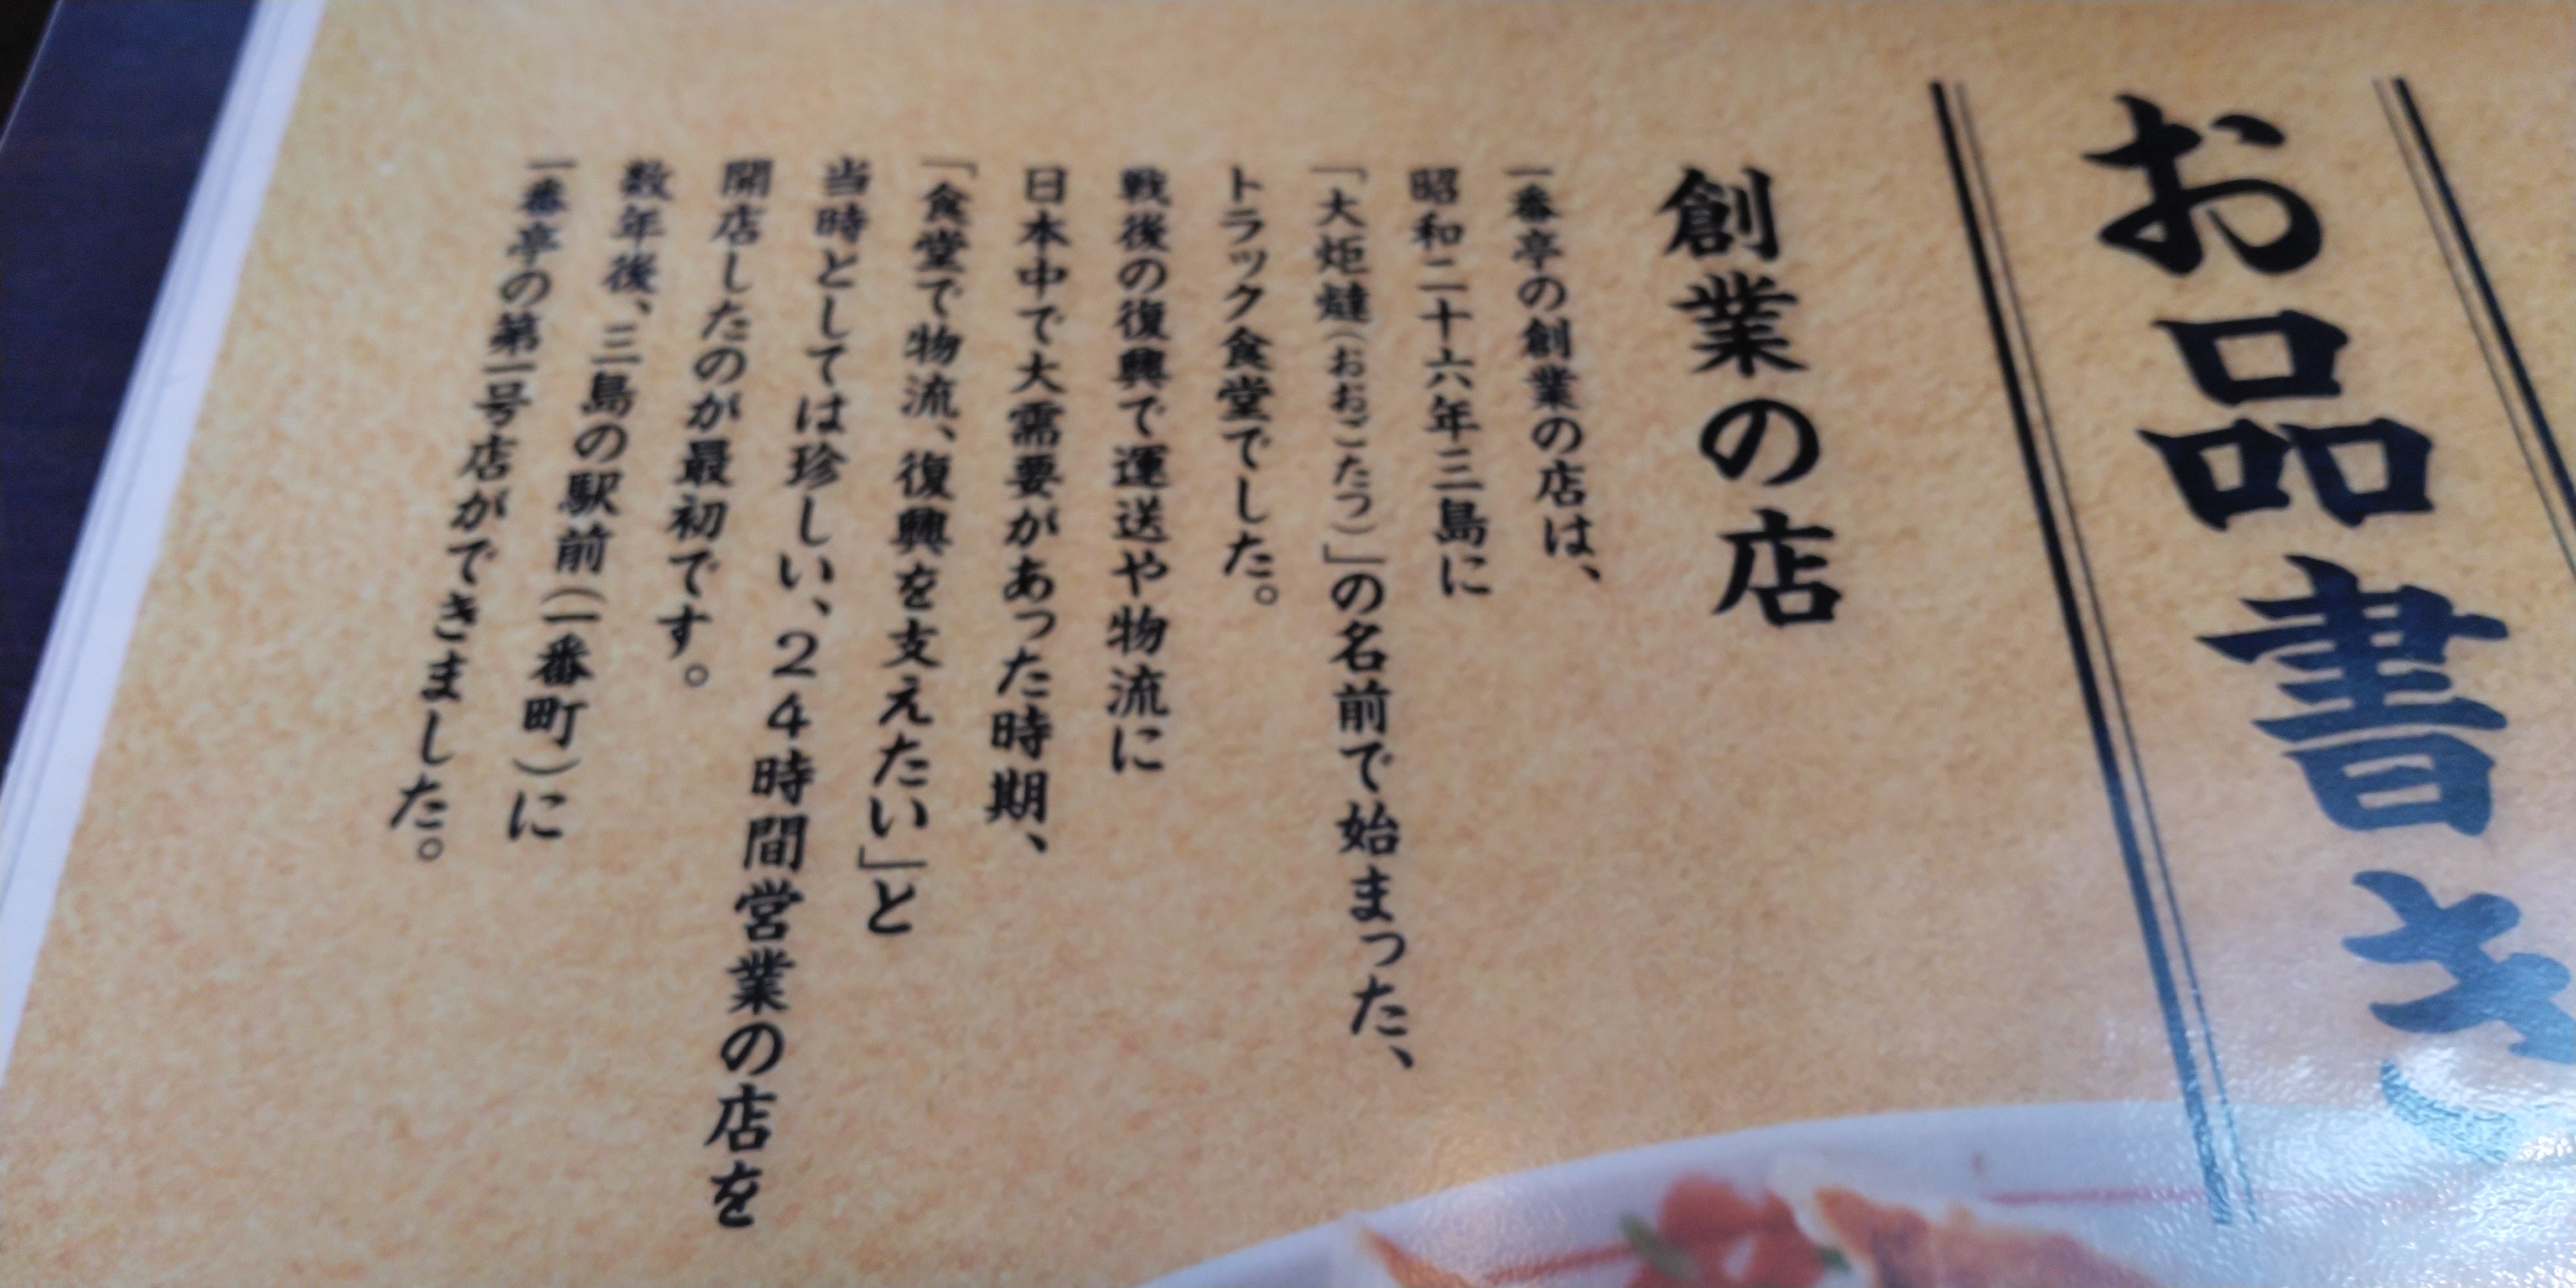 お品書き
創業の店
一番亭の創業の店は、
昭和二十六年三島に
「大炬燵(おおごたつ)」の名前で始まった、
トラック食堂でした。
戦後の復興で運送や物流に
日本中で大需要があった時期、
「食堂で物流、復興を支えたい」と
当時としては珍しい、24時間営業の店を
開店したのが最初です。
数年後、三島の駅前(一番町)に
一番亭の第一号店ができました。